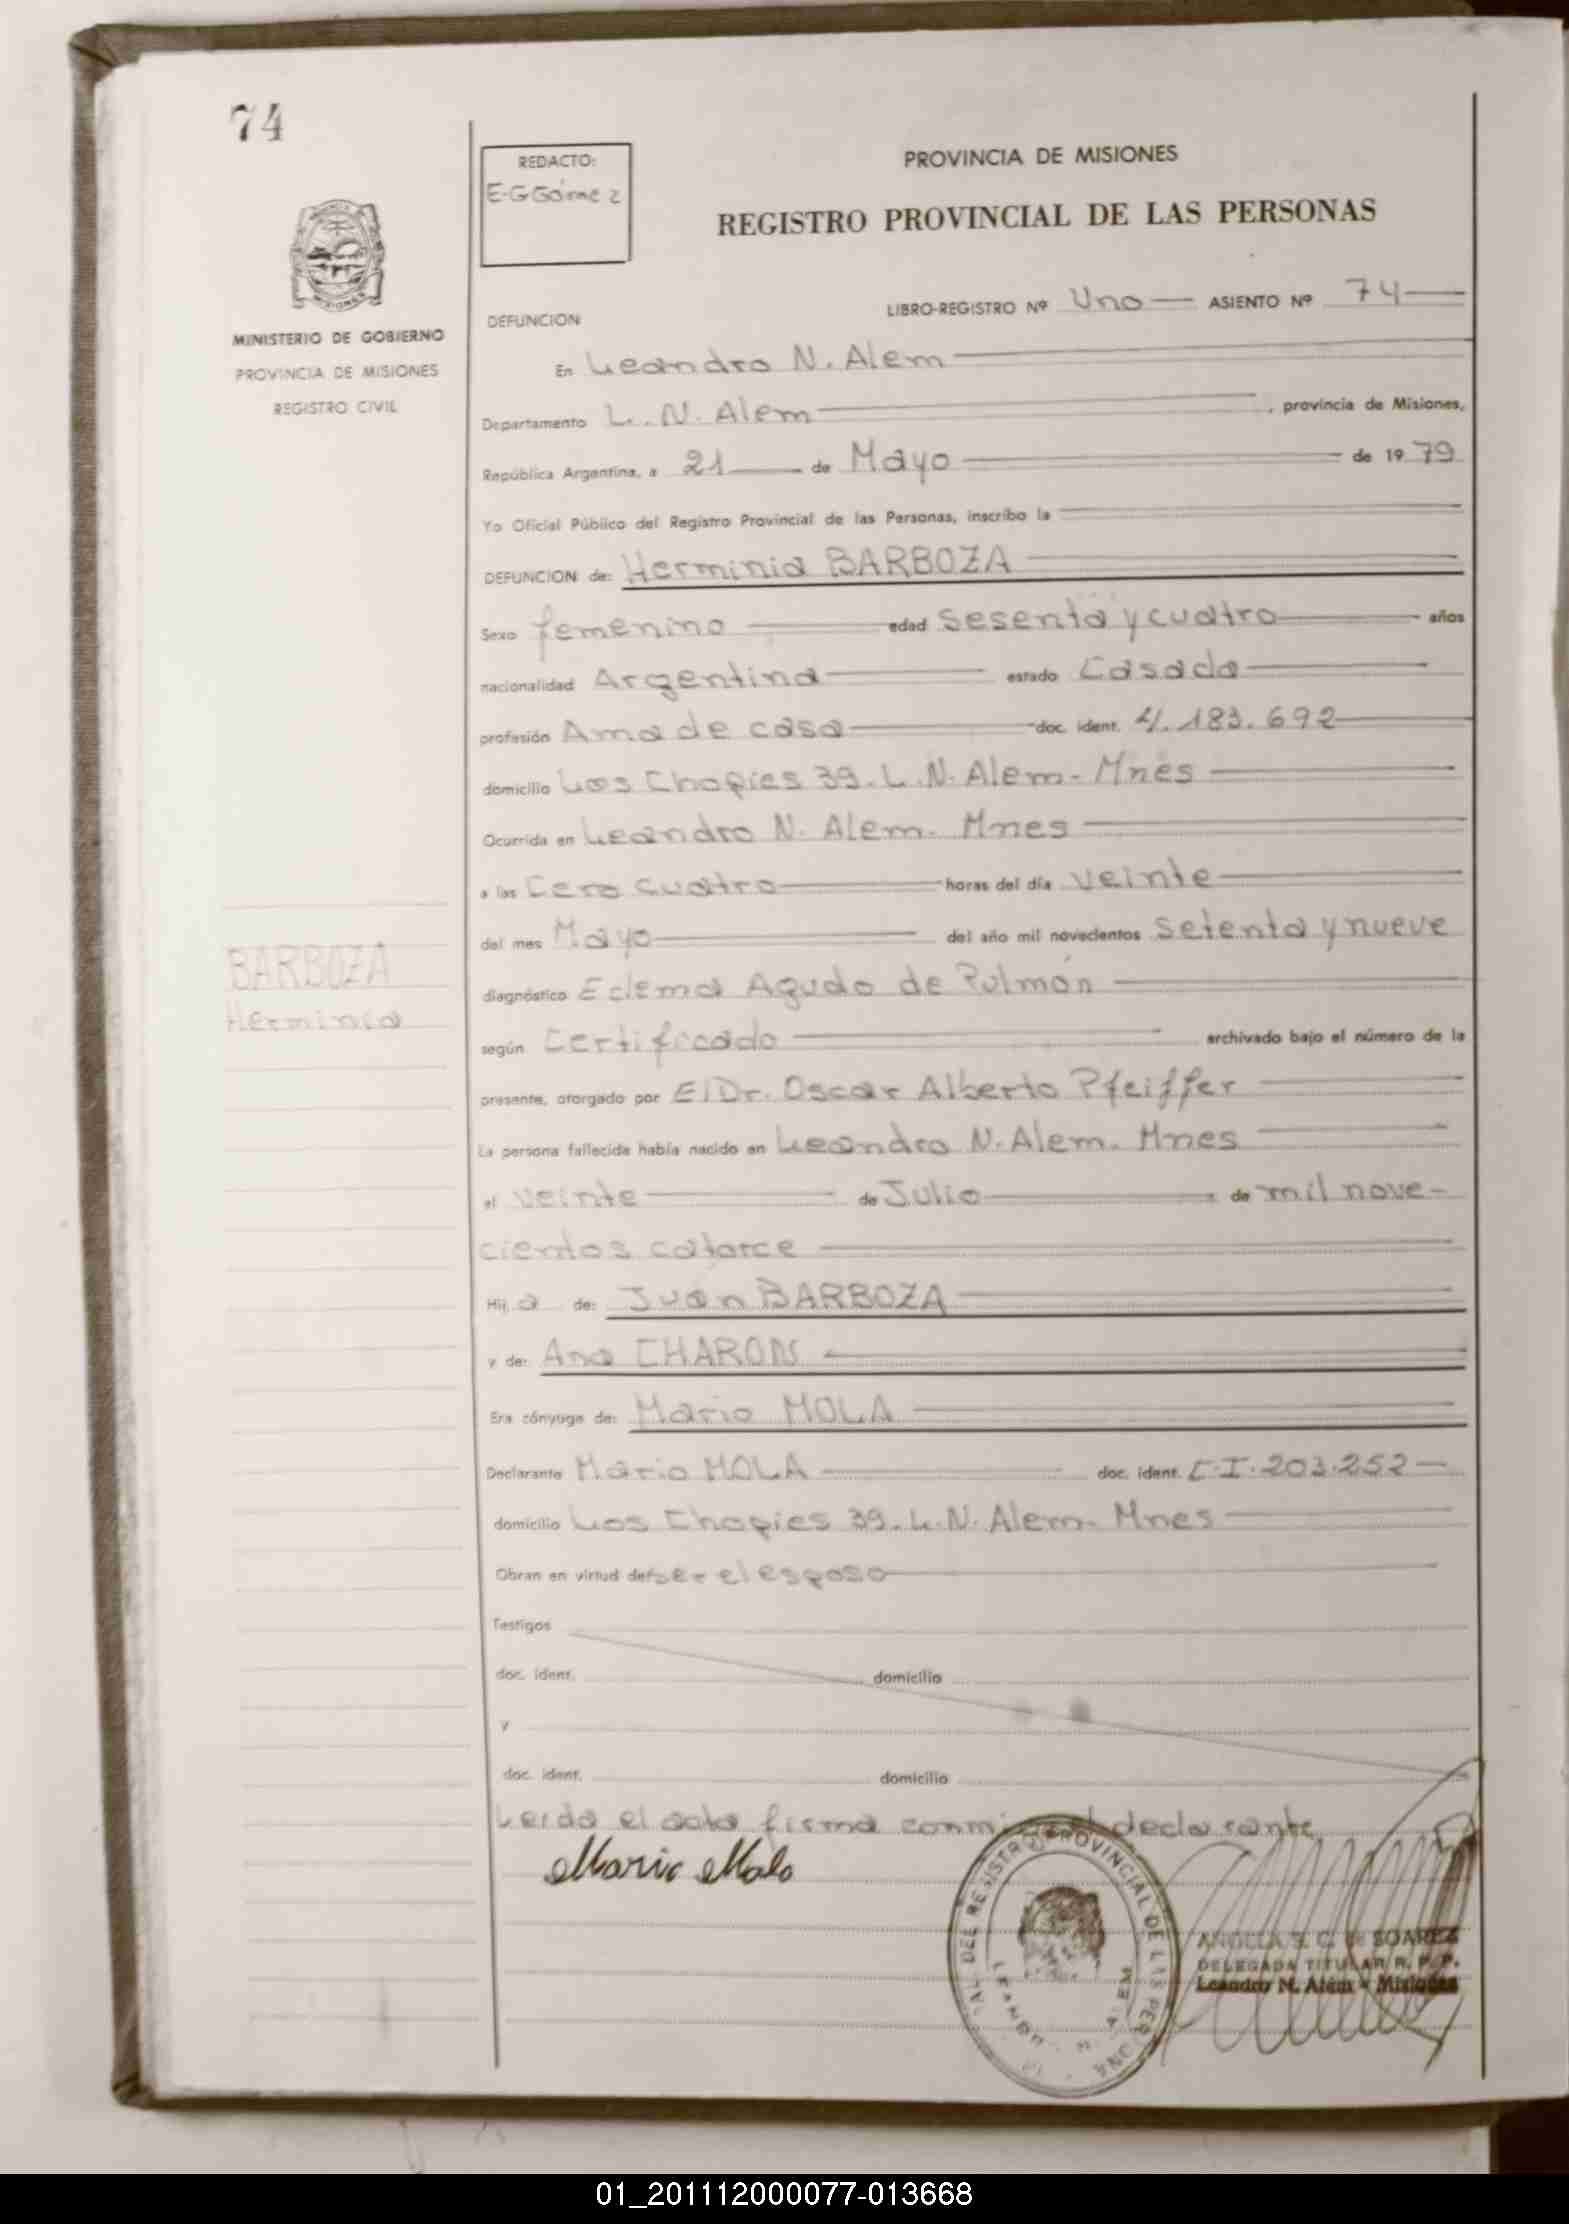 74
REDACTO:
E-G Gómez
PROVINCIA DE MISIONES
REGISTRO PROVINCIAL DE LAS PERSONAS
MISIONES
MINISTERIO DE GOBIERNO
PROVINCIA DE MISIONES
REGISTRO CIVIL
DEFUNCION
LIBRO-REGISTRO Nº Uno ASIENTO Nº 74
En Leandro N. Alem
Departamento L. N. Alem, provincia de Misiones,
República Argentina, a 21 de Mayo de 1979
Yo Oficial Público del Registro Provincial de las Personas, inscribo la
DEFUNCION de: Herminia BARBOZA
Sexo femenino edad sesenta y cuatro años
nacionalidad Argentina estado Casada
profesión Ama de casa doc. ident. 4.183.692
domicilio Los Chapies 39. L.N. Alem- Mnes
Ocurrida en Leandro N. Alem. Mnes
a las Cero cuatro horas del día veinte
del mes Mayo del año mil novecientos setenta y nueve
BARBOZA
Herminia
diagnóstico Edema Agudo de Pulmón
según Certificado archivado bajo el número de la
presente, otorgado por El Dr. Oscar Alberto Pfeiffer
La persona fallecida había nacido en Leandro N. Alem. Mnes
el veinte de Julio de mil nove-
cientos catorce
Hij a de: Juan BARBOZA
y de: Ana CHARON
Era cónyuge de: Mario MOLA
Declarante Mario MOLA doc. ident. C.I.203.252
domicilio Los Chapies 39. L.N. Alem- Mnes
Obran en virtud de: ser el esposo
Testigos
doc. ident. domicilio
y
doc. ident. domicilio
Leida el acta firma conmi el declarante
Mario Mola
DEL REGISTRO PROVINCIAL DE LAS PERSONAS
LEANDRO N. ALEM
ANGELA S. C. de SOAREZ
DELEGADA TITULAR R. P. P.
Leandro N. Alem - Misiones
01_201112000077-013668